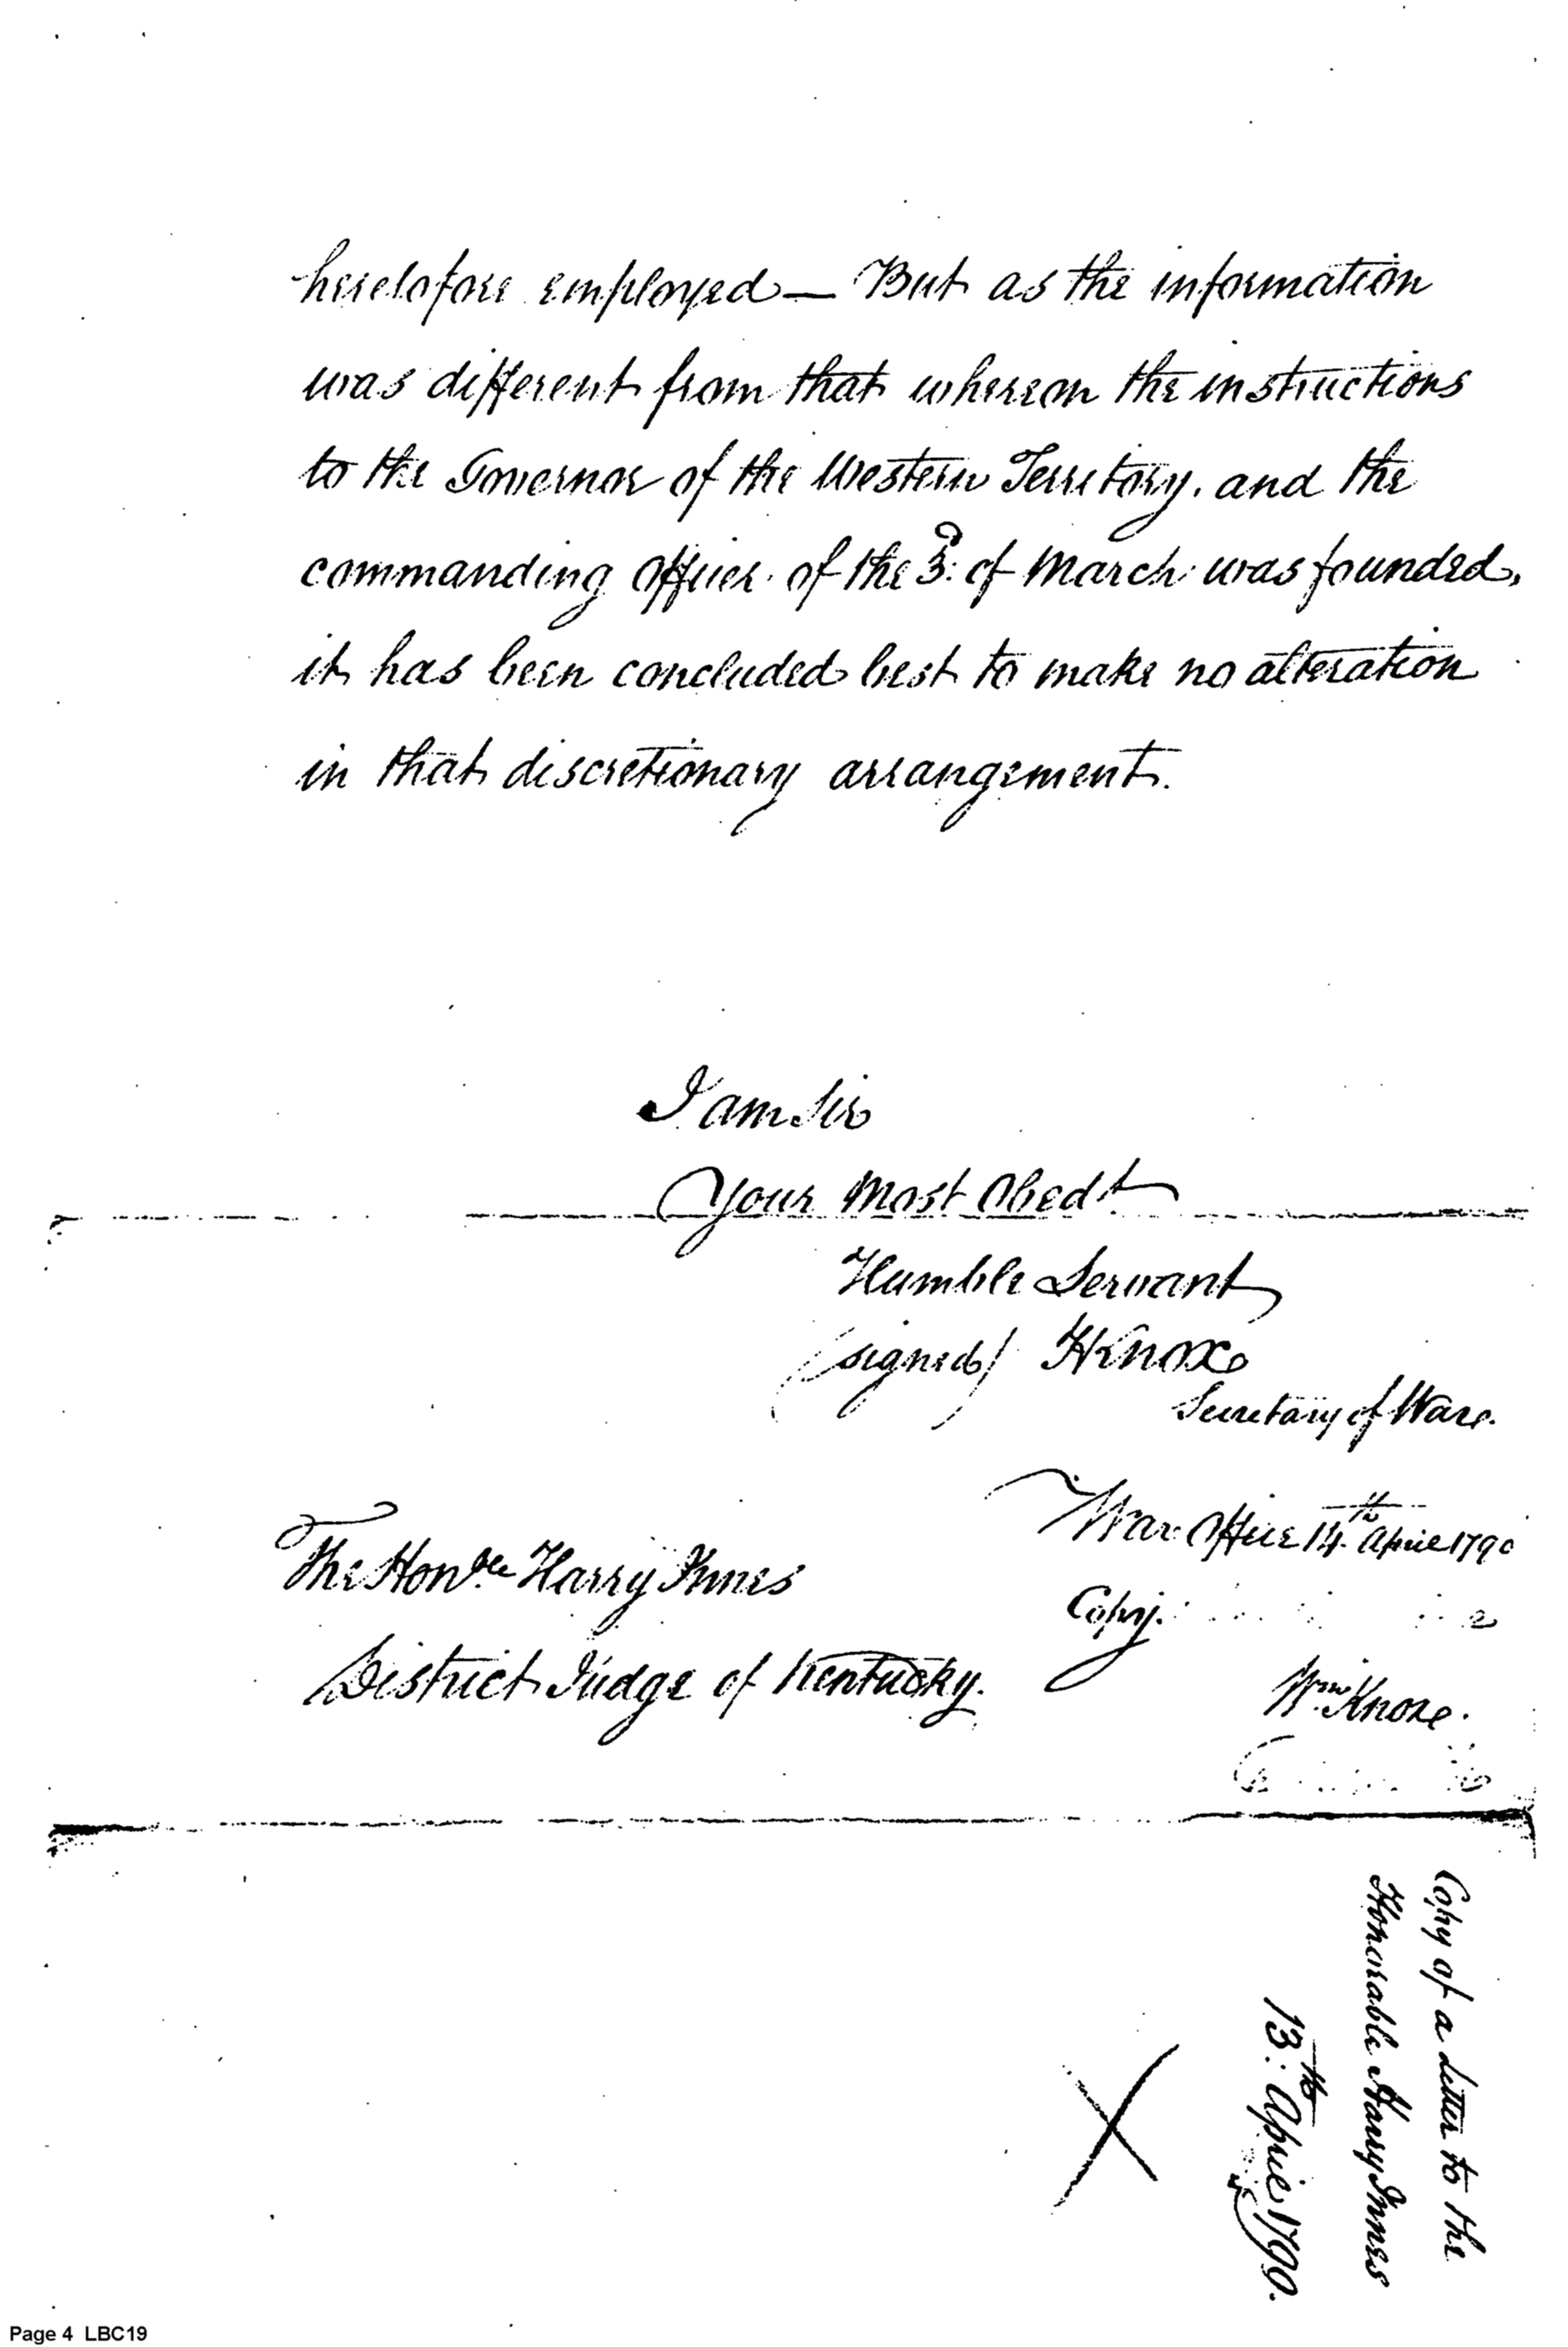 heretofore employed — But as the information
was different from that whereon the instructions
to the Governor of the Western Territory, and the
commanding officer of the 3d. of March was founded,
it has been concluded best to make no alteration
in that discretionary arrangement.
I am Sir
Your Most Obedt
Humble Servant
(signed) HKnox
Secretary of War.
War Office 14th April 1790
The Honble Harry Innes
Copy.
District Judge of Kentucky.
Wm Knox.
Copy of a Letter to the
Honorable Harry Innes
13th: April 1790.
Page 4 LBC19